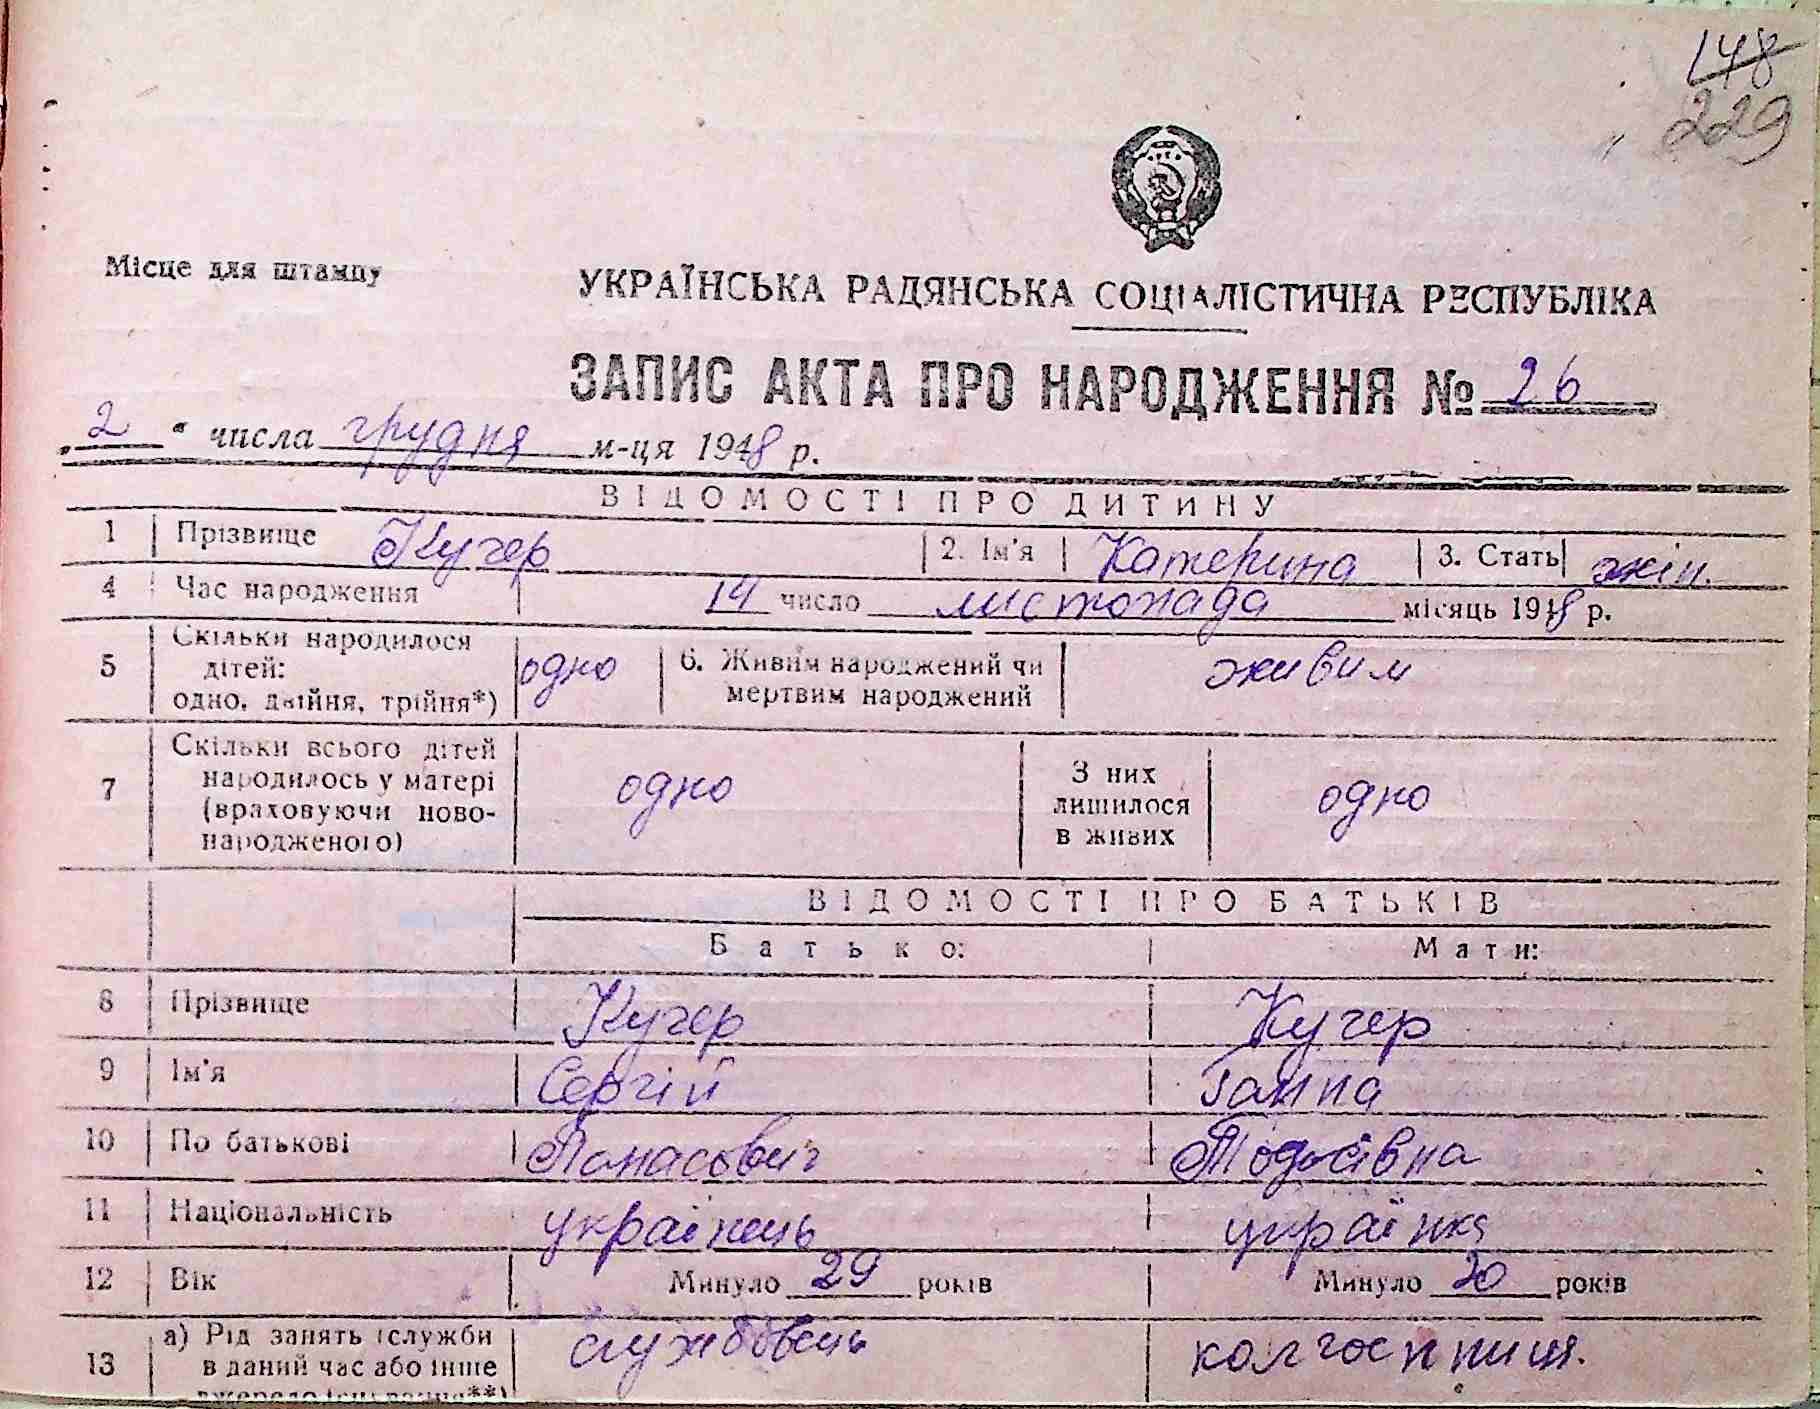 148
229
Місце для штампу
УКРАЇНСЬКА РАДЯНСЬКА СОЦІАЛІСТИЧНА РЕСПУБЛІКА
ЗАПИС АКТА ПРО НАРОДЖЕННЯ № 26
„2“ числа грудня м-ця 1948 р.
ВІДОМОСТІ ПРО ДИТИНУ
1 Прізвище Кучер 2. Ім'я Катерина 3. Стать жін.
4 Час народження 14 число листопада місяць 1948 р.
5 Скільки народилося дітей: одно, двійня, трійня*) одно 6. Живим народжений чи мертвим народжений живим
7 Скільки всього дітей народилось у матері (враховуючи ново-народженого) одно З них лишилося в живих одно
ВІДОМОСТІ ПРО БАТЬКІВ
Батько: Мати:
8 Прізвище Кучер Кучер
9 Ім'я Сергій Ганна
10 По батькові Панасович Тодосівна
11 Національність українець українка
12 Вік Минуло 29 років Минуло 20 років
13 а) Рід занять (служби в даний час або інше джерело існування**) службовець колгоспниця.